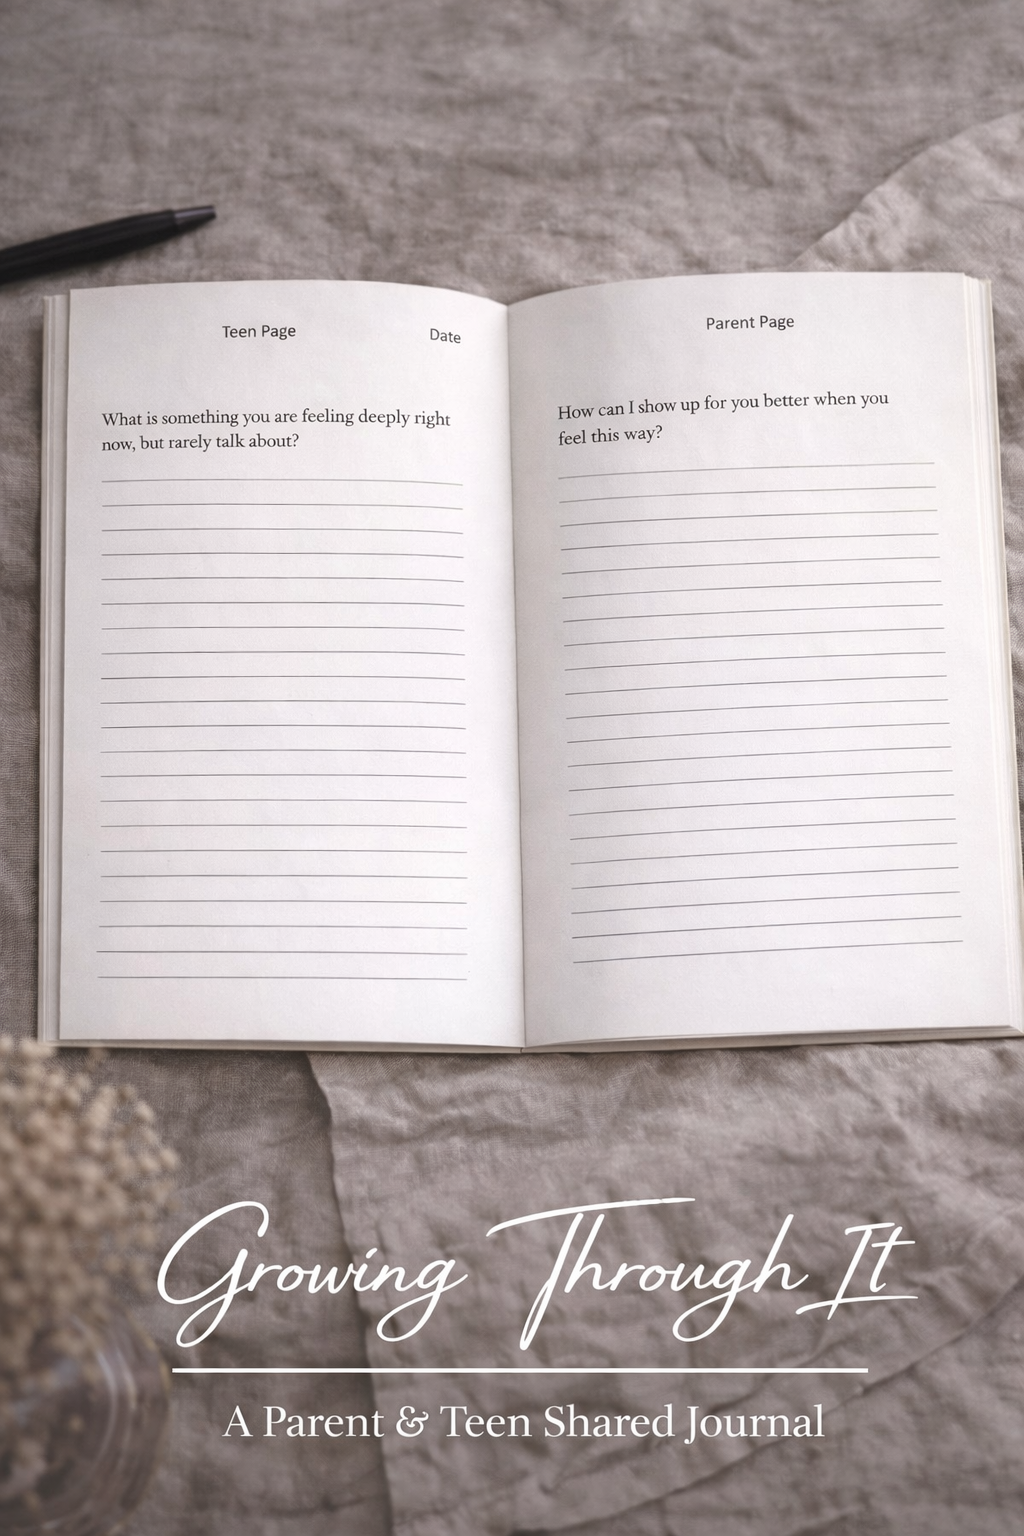 Teen Page
Date
What is something you are feeling deeply right
now, but rarely talk about?
Parent Page
How can I show up for you better when you
feel this way?
Growing Through It
A Parent & Teen Shared Journal